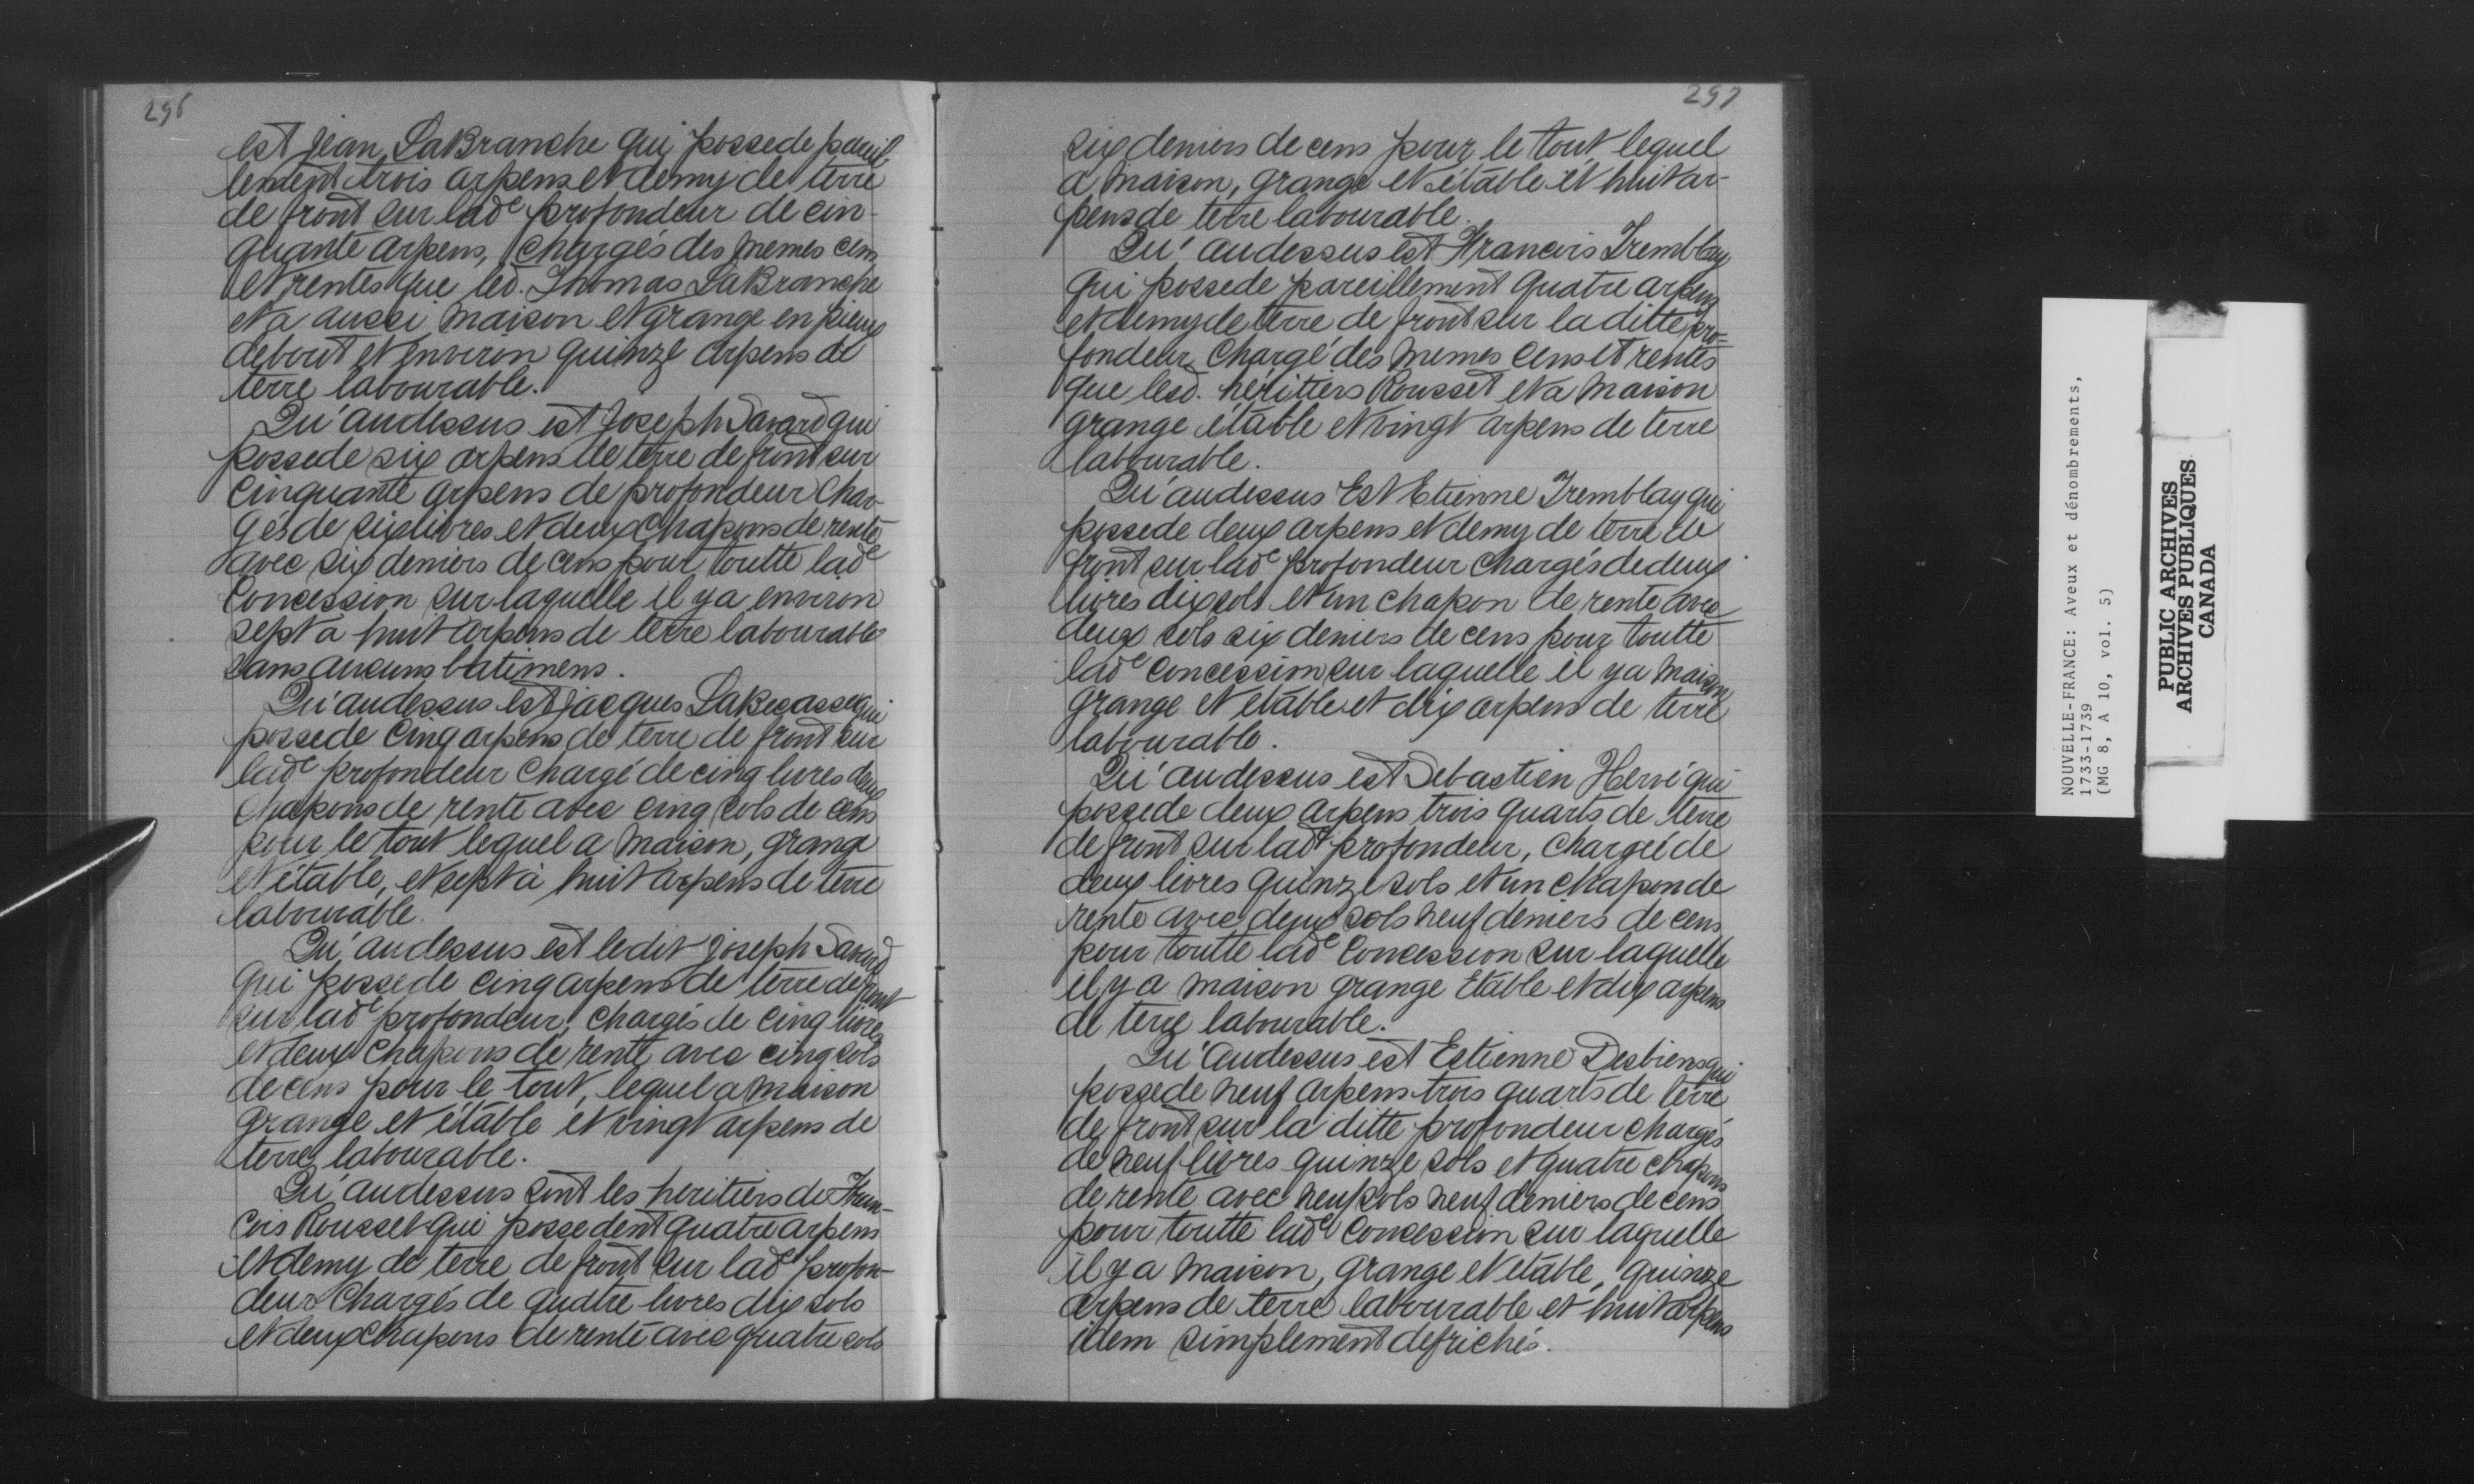 296
est Jean LaBranche qui possede pareil
lement trois arpens et demy de terre
de front sur lad^e profondeur de cin-
quante arpens, chargés des memes cens
et rentes que led. Thomas LaBranche
et a aussi maison et grange en pieux
debout et environ quinze arpens de
terre labourable.
Qu'audessus est Joseph Savard qui
possede six arpens de terre de front sur
cinquante arpens de profondeur char-
gés de six livres et deux chapons de rente
avec six deniers de cens pour toutte lad^e
Concession sur laquelle il y a environ
sept a huit arpens de terre labourable
sans aucuns batimens.
Qu'audessus est Jacques LaBecasse qui
possede Cinq arpens de terre de front sur
lad^e profondeur chargé de cinq livres deux
chapons de rente avec cinq sols de cens
pour le tout lequel a maison, grange
et étable, et sept à huit arpens de terre
labourable.
Qu'audessus est ledit Joseph Savard
qui possede cinq arpens de terre de front
sur lad^e profondeur, chargés de cinq livres
et deux chapons de rente avec cinq sols
de cens pour le tout, lequel a maison
grange et étable et vingt arpens de
terre labourable.
Qu'audessus sont les heritiers de Fran-
cois Rousset qui possedent quatre arpens
et demy de terre de front sur lad^e profon-
deur chargés de quatre livres dix sols
et deux chapons de rente avec quatre sols
297
six deniers de cens pour le tout lequel
a maison, grange et étable et huit ar-
pens de terre labourable.
Qu'audessus est Francois Tremblay
qui possede pareillement quatre arpens
et demy de terre de front sur la ditte pro-
fondeur chargé des memes cens et rentes
que lesd. héritiers Rousset et a maison
grange étable et vingt arpens de terre
labourable.
Qu'audessus Est Etienne Tremblay qui
possede deux arpens et demy de terre de
front sur lad^e profondeur chargés de deux
livres dix sols et un chapon de rente avec
deux sols six deniers de cens pour toutte
lad^e concession sur laquelle il y a maison
grange et etable et dix arpens de terre
labourable.
Qu'audessus est Sebastien Hervé qui
possede deux arpens trois quarts de terre
de front sur lad^e profondeur, chargé de
deux livres quinze sols et un chapon de
rente avec deux sols neuf deniers de cens
pour toutte lad^e Concession sur laquelle
il y a maison grange Etable et dix arpens
de terre labourable.
Qu'audessus est Estienne Desbiens qui
possede neuf arpens trois quarts de terre
de front sur la ditte profondeur chargés
de neuf livres quinze sols et quatre chapons
de rente avec neuf sols neuf deniers de cens
pour toutte lad^e Concession sur laquelle
il y a maison, grange et etable, quinze
arpens de terre labourable et huit arpens
idem simplement defrichés.
NOUVELLE-FRANCE: Aveux et dénombrements,
1733-1739
(MG 8, A 10, vol. 5)
PUBLIC ARCHIVES
ARCHIVES PUBLIQUES
CANADA